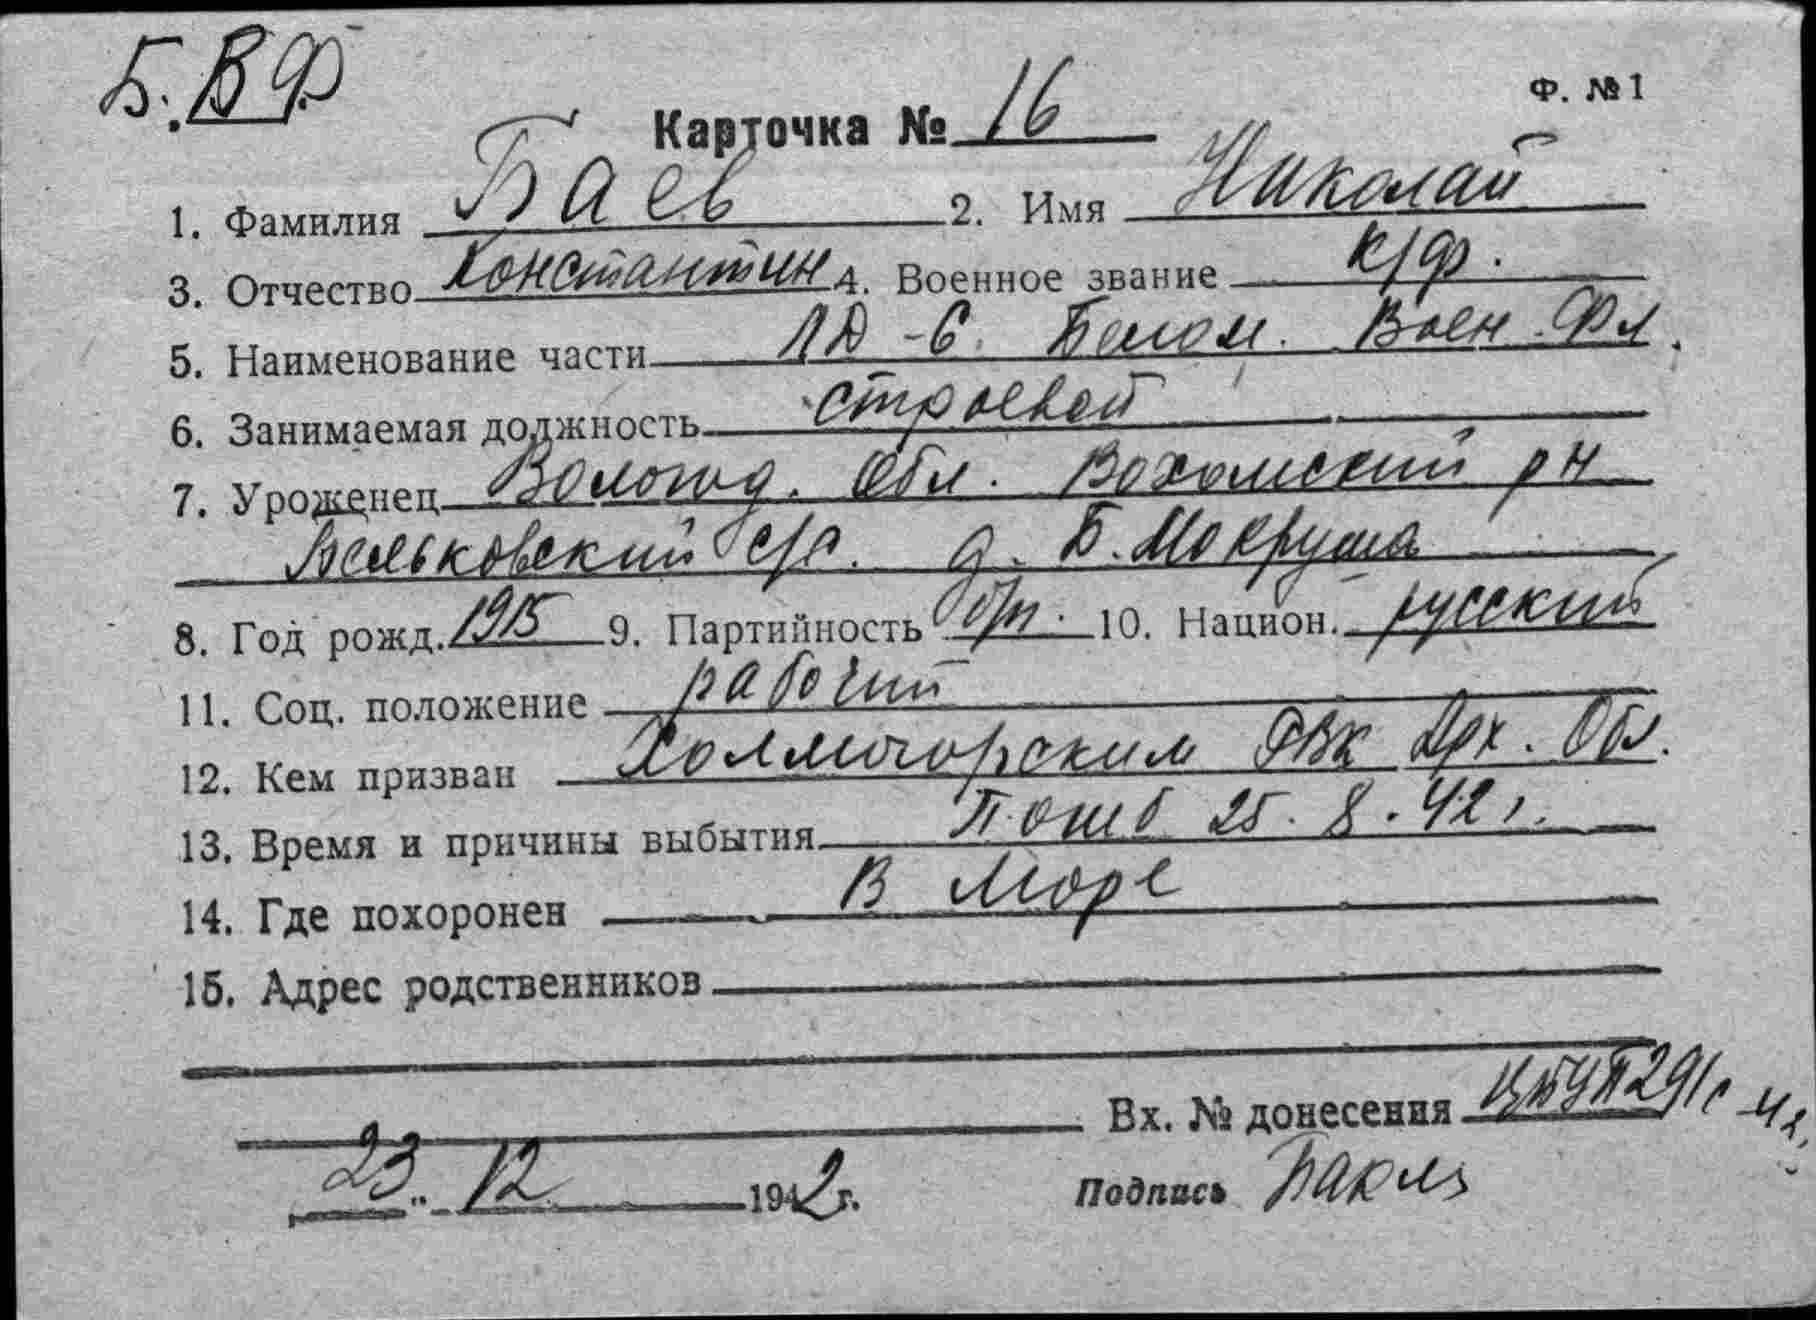 Б. В Ф
Ф. №1
Карточка № 16
1. Фамилия Баев 2. Имя Николай
3. Отчество Константин 4. Военное звание к/ф.
5. Наименование части ЛД-6. Белом. Воен. Фл.
6. Занимаемая должность строевой
7. Уроженец Вологод. Обл. Вохомский рн
Бельковский с/с. д. Б. Мокруша
8. Год рожд. 1915 9. Партийность б/п. 10. Национ. русский
11. Соц. положение рабочий
12. Кем призван Холмогорским РВК Арх. Обл.
13. Время и причины выбытия Погиб 25.8.42 г.
14. Где похоронен В море
15. Адрес родственников
Вх. № донесения
23 " 12 1942 г. Подпись